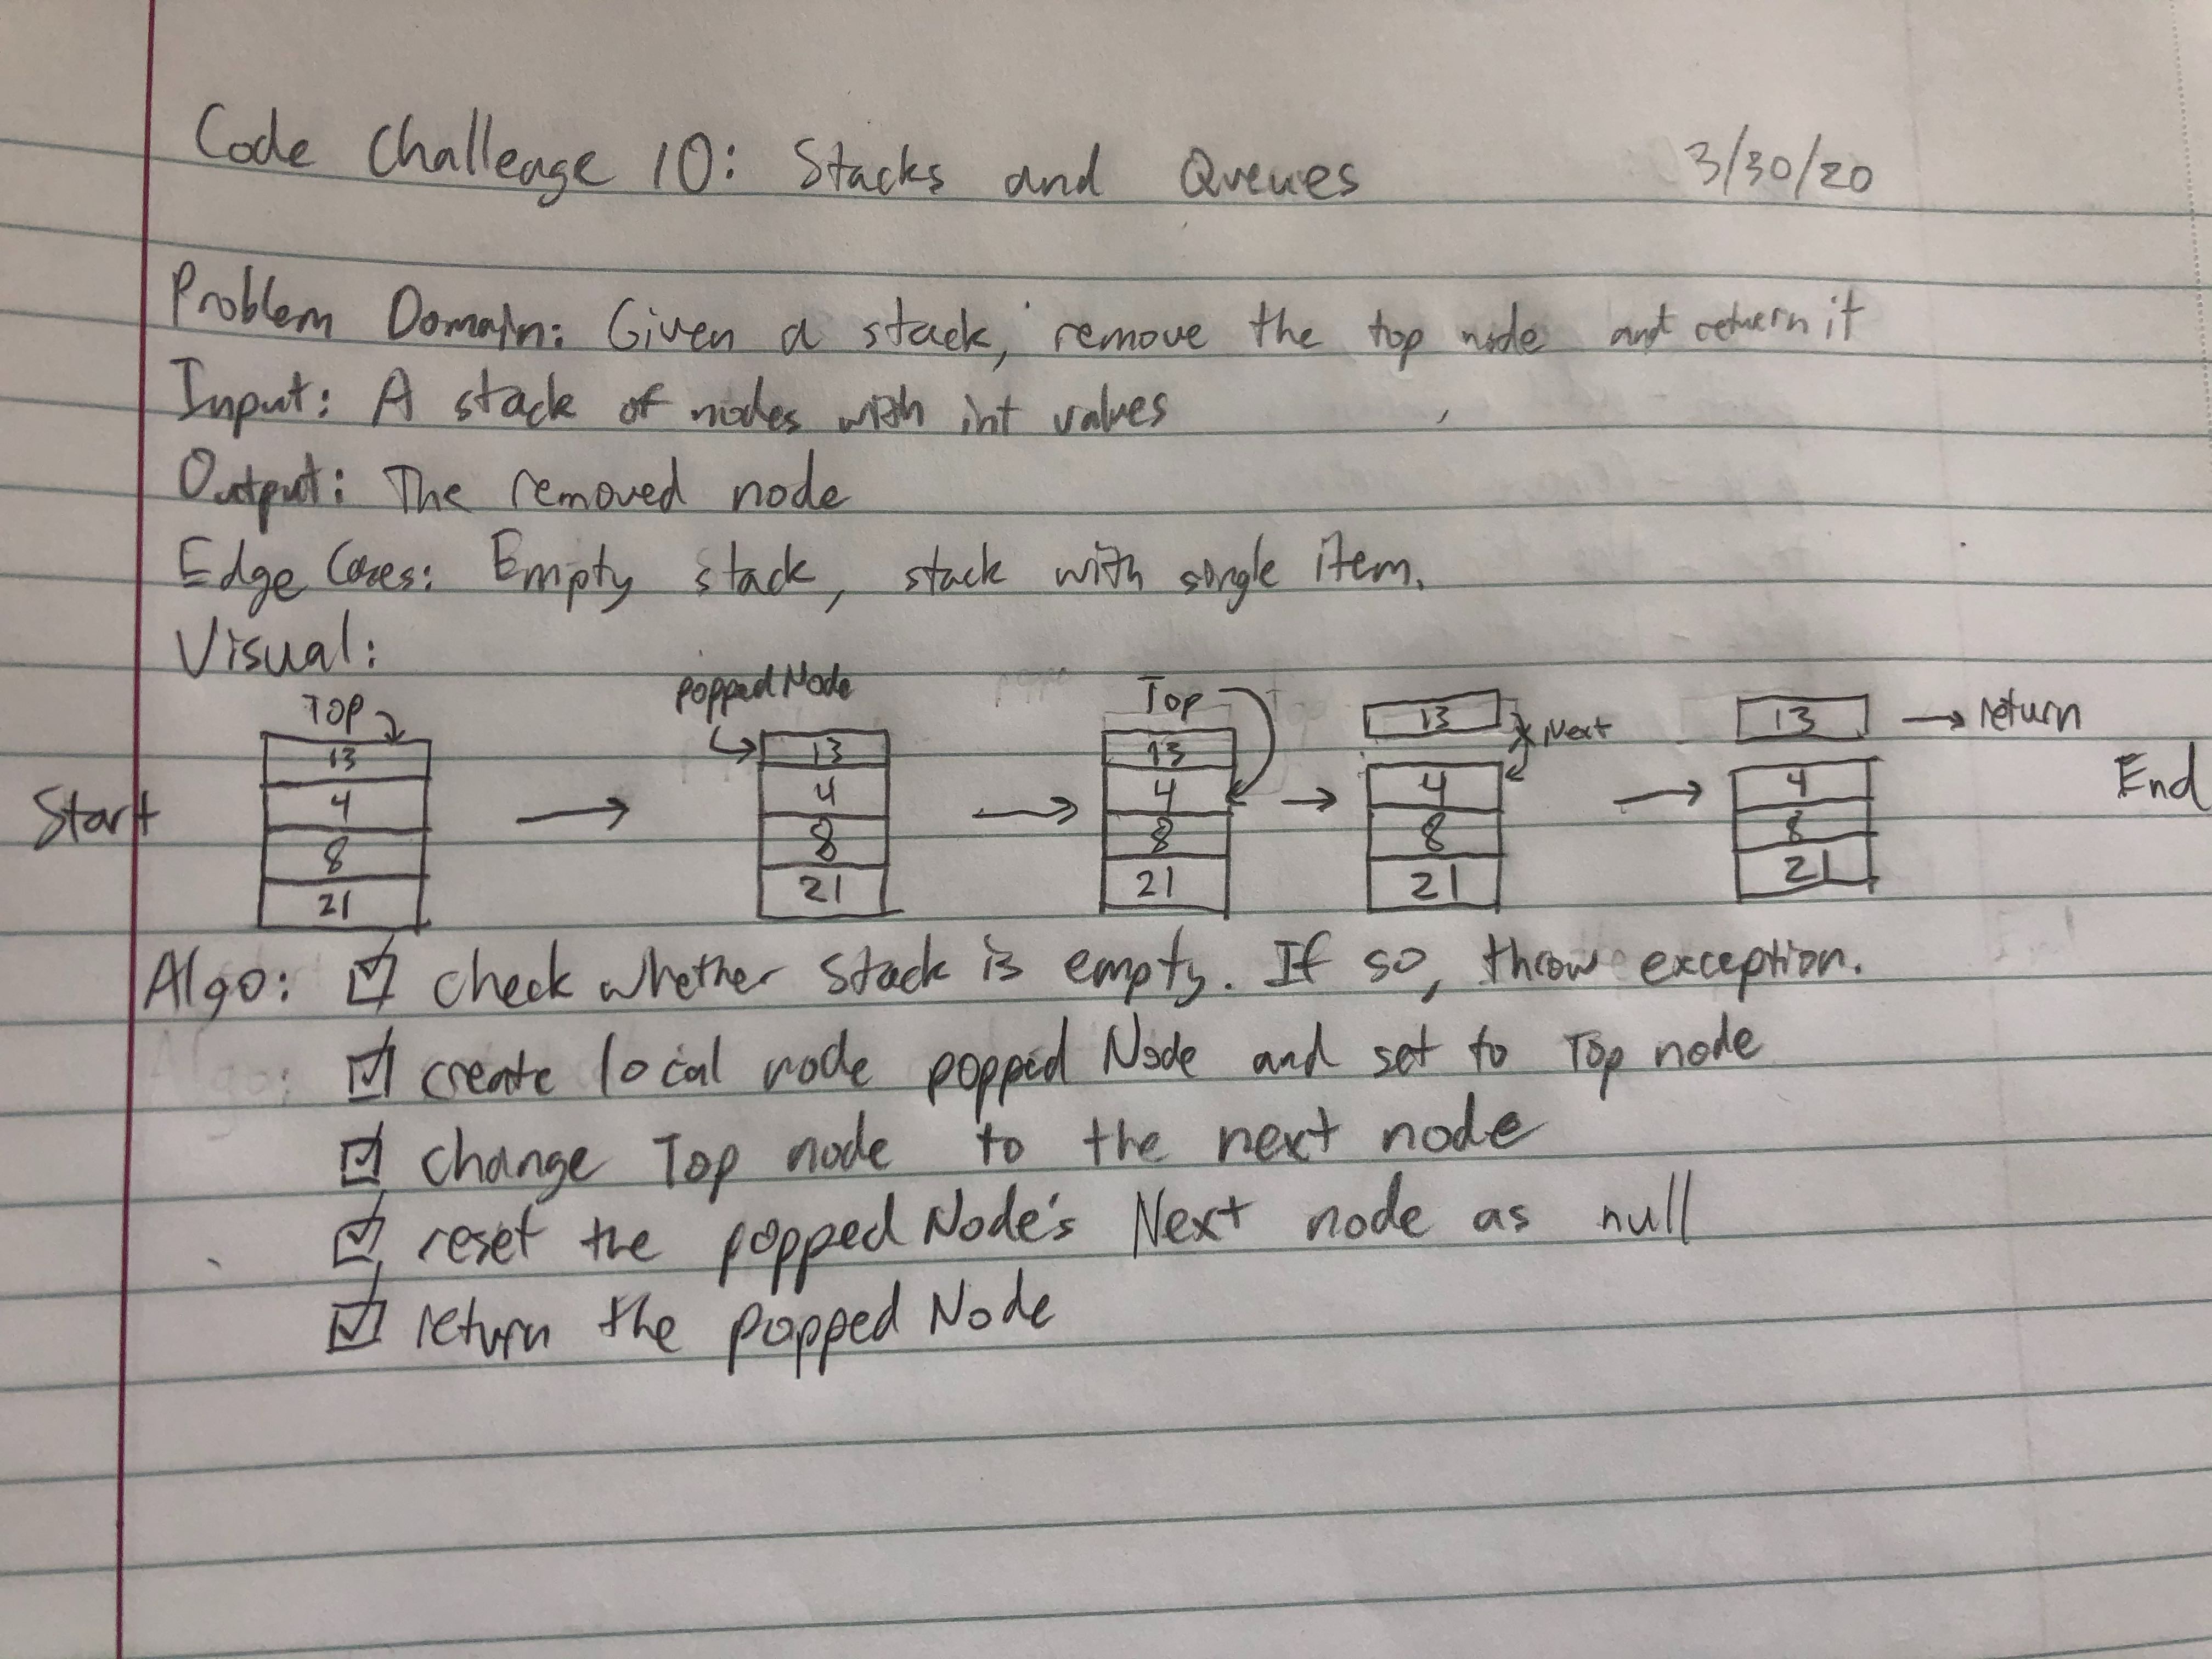 Code Challenge 10: Stacks and Queues 3/30/20
Problem Domain: Given a stack, remove the top node and return it
Input: A stack of nodes with int values
Output: The removed node
Edge Cases: Empty stack, stack with single item.
Visual:
Top poppedNode Top
13 13 13 13 Next 13 → return
Start 4 → 4 → 4 → 4 → 4 End
8 8 8 8 8
21 21 21 21 21
Algo: ☑ check whether stack is empty. If so, throw exception.
☑ create local node poppedNode and set to Top node
☑ change Top node to the next node
☑ reset the poppedNode's Next node as null
☑ return the poppedNode